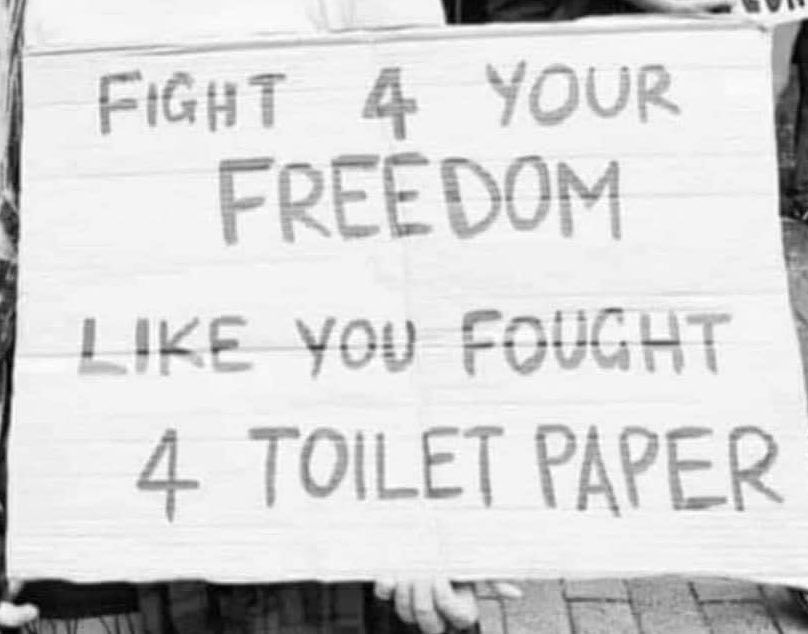 FIGHT 4 YOUR
FREEDOM
LIKE YOU FOUGHT
4 TOILET PAPER